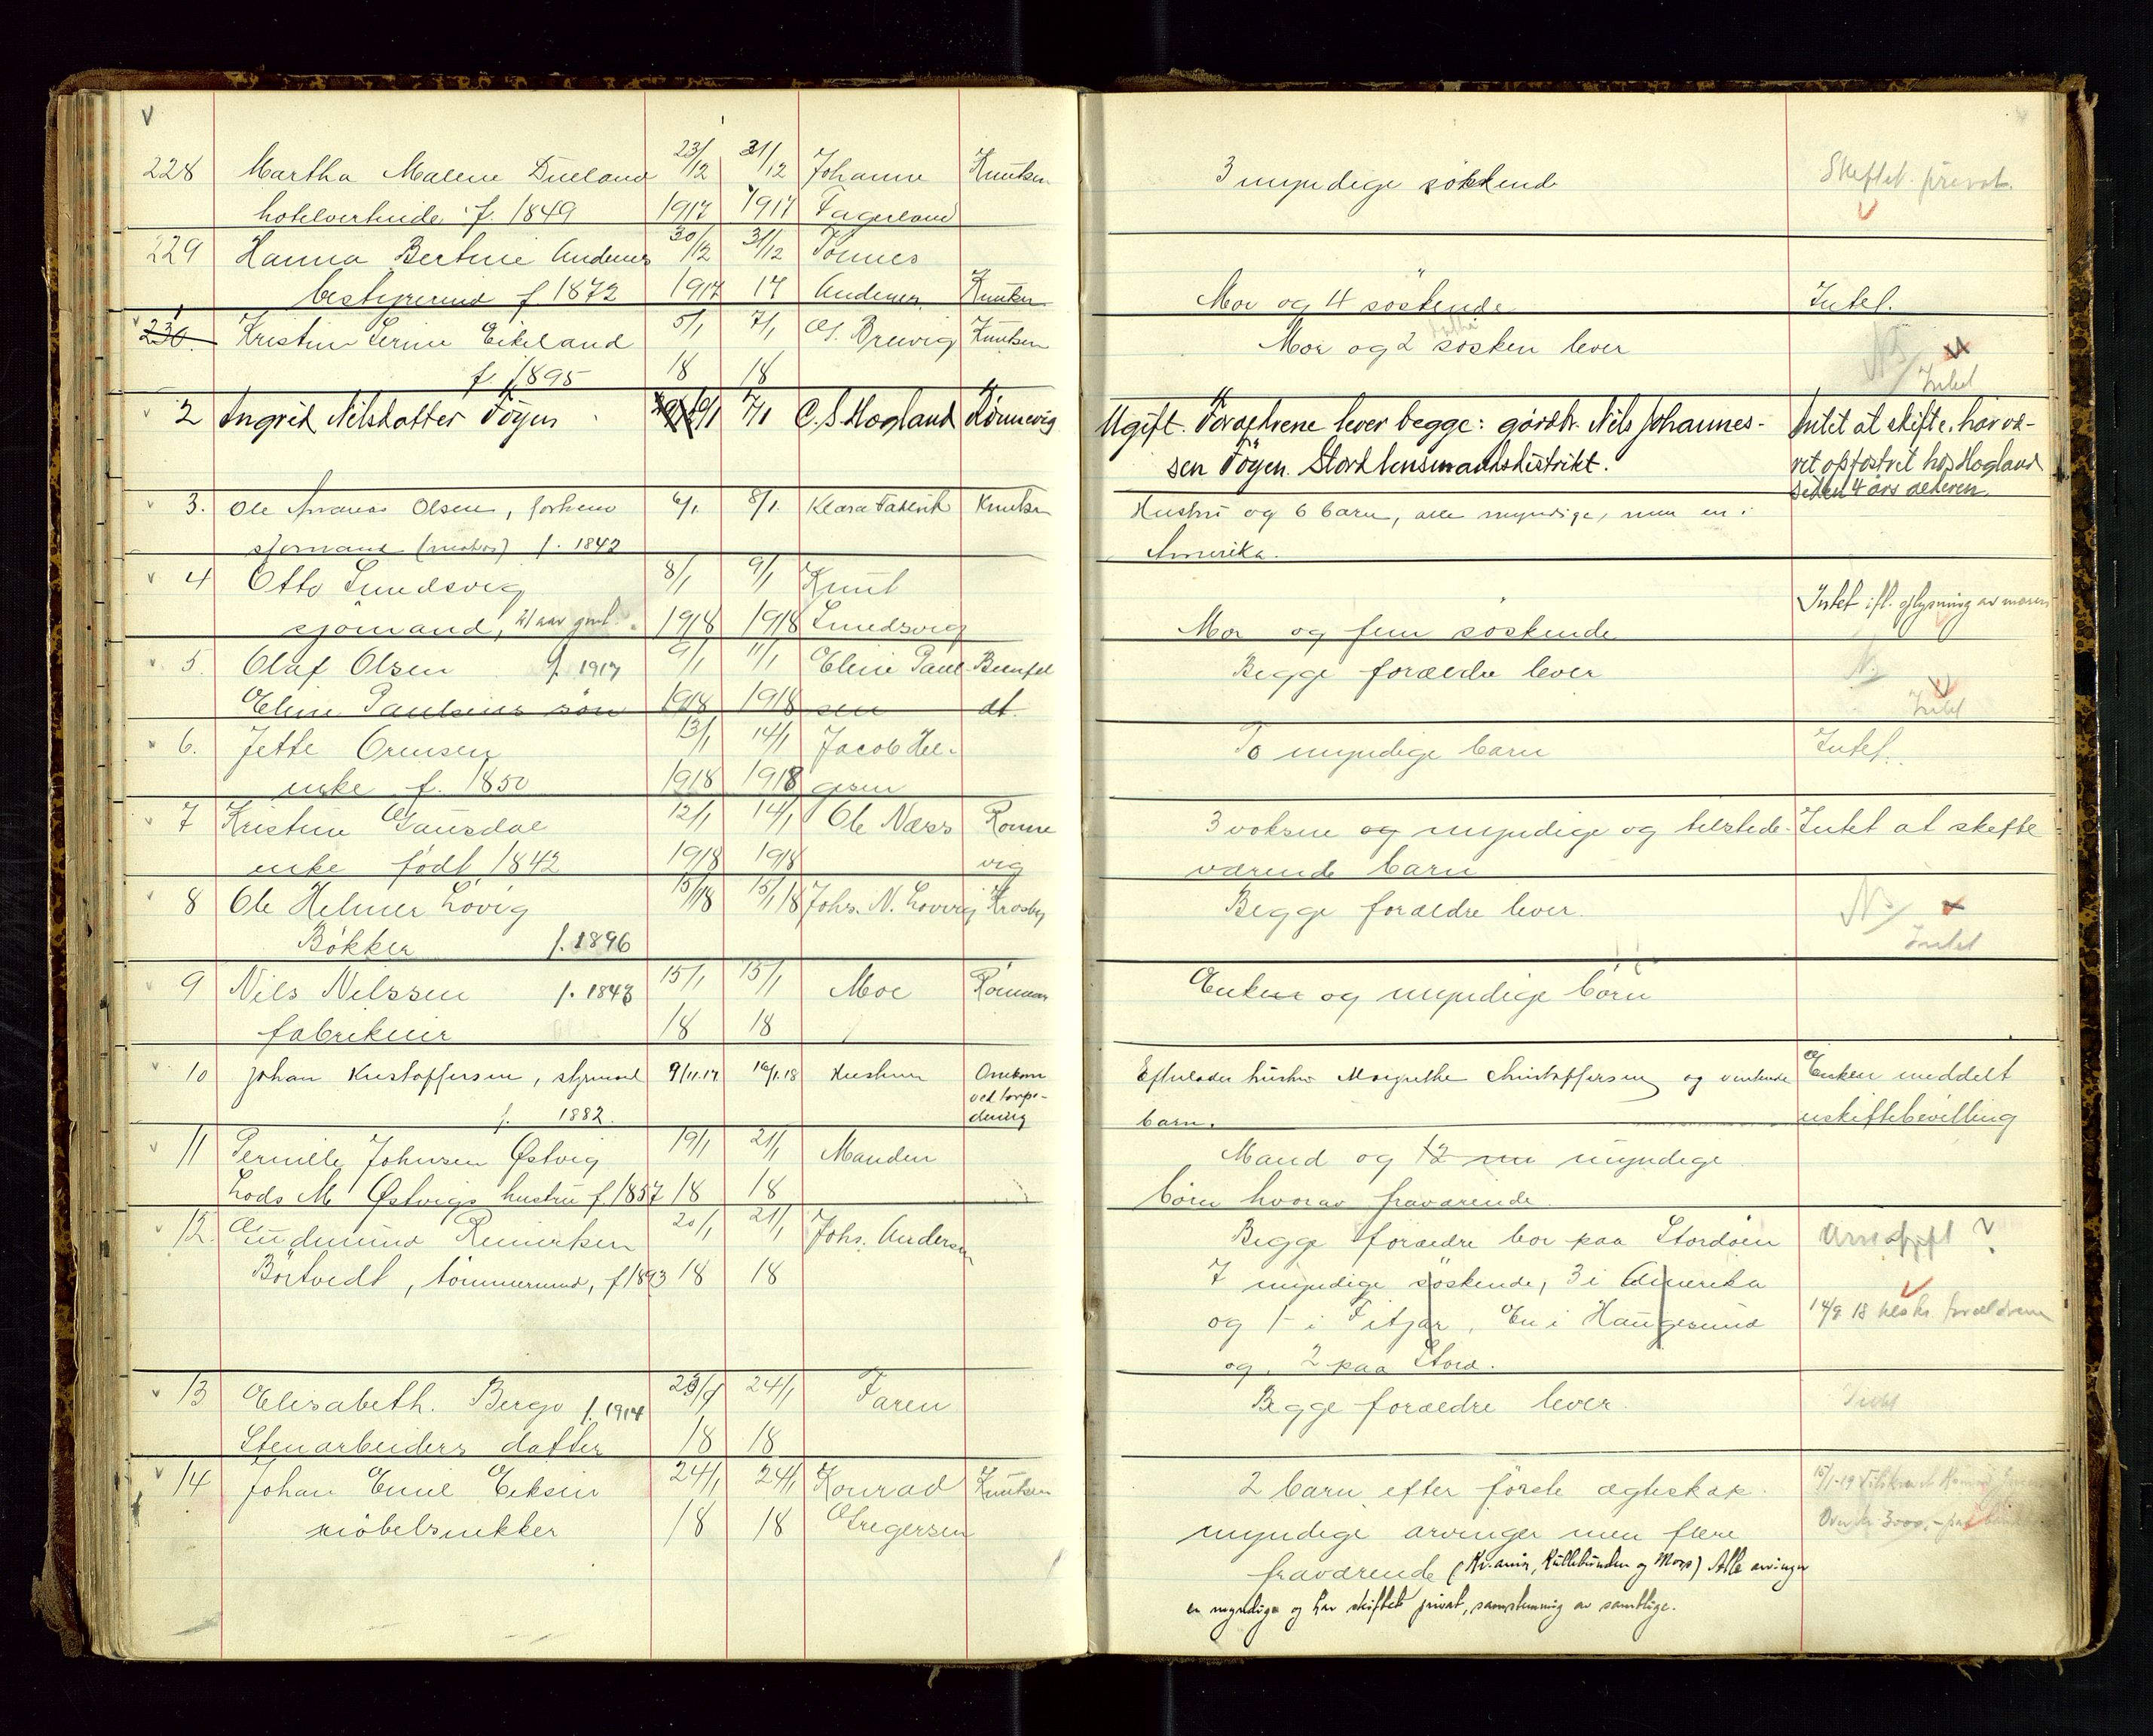 228 Martha Malene Dueland 23/12 31/12 Johanne Knutsen 3 myndige søskend Skiftet privat.
hotelvertinde f. 1849 1917 1917 Fagerland
229 Hanna Bertine Andenes 30/12 31/12 Tønnes
bestyrerind f 1872 1917 17 Andenes Knutsen Mor og 4 søskende Intet.
1
230. Kristine Serine Eikeland 5/1 7/1 Brevig Knutsen Mor og 2 søsken lever
f. 1895 18 18 Intet
2 Ingrid Nilsdatter Tøgen 6/1 7/1 C. S. Hogland Rönnevig Ugift. Forældrene lever begge: gårdbr. Nils Johannes- Intet at skifte, har væ-
sen Tøgen. Stord lensmandsdistrikt. ret opfostret hos Hogland
siden 4 års alderen.
3. Ole Andreas Olsen, forhenv 6/1 8/1 Klara Knutsen Hustru og 6 barn, alle myndige, nun en i
sjømand f. 1842 Amerika.
4 Otto Smedsvig 8/1 9/1 Knut
sjømand, 21 aar gml. 1918 1918 Smedsvig Mor og fem søskende Intet ifl. oplysning av moren
5. Olaf Olsen f. 1917 9/1 11/1 Eline Paul- Bernfel Begge forældre lever
Eline Paulsens søn 1918 1918 sen dt. Intet
6. Jette Orensen 13/1 14/1 Jacob Hel- To myndige barn Intet.
enke f. 1850 1918 1918 gesen
7 Kristine Gausdal 12/1 14/1 Ole Næss Rønne 3 voksne og myndige og tilstede- Intet at skifte
enke født 1842 1918 1918 vig værende barn
8 Ole Helmer Lovig 15/1 18 15/1 18 Johs. N. Lovvig Krosby Begge forældre lever.
Bökker f. 1896 Intet
9 Nils Nilssen f. 1843 15/1 15/1 Moe Enken og myndige börn
fabrikeier 18 18
10 Johan Kristoffersen, styrmand 9/11.17 16/1.18 Hustruen Omkom Efterlader hustru Margrethe Christoffersen og ventende Enken meddelt
f. 1882. ved torpe- barn. uskiftebevilling
dering
11 Pernille Johnsen Østvig 19/1 21/1 Manden Mand og 12 myndige
Lods M Østvigs hustru f. 1857 18 18 börn hvorav fraværende.
12. Gudmund Reinertsen 20/1 21/1 Johs. Andersen Begge forældre bor paa Stordöen
Börtvedt, tömmermand, f 1893 18 18 7 myndige söskende, 3 i Amerika
og 1 i Fitjar, En i Haugesund 14/9 18 forældrene
og 2 paa Stord.
13 Elisabeth. Berge f. 1914 23/1 24/1 Faren Begge forældre lever. Intet
Stenarbeiders datter 18 18
14 Johan Emil Eiksin 24/1 24/1 Konrad Knutsen 2 barn efter förste ægteskap. 15/1-19
möbelsnekker 18 18 Gregersen myndige arvinger men flere Over kr. 3000,-
fraværende (Kr.ania, Kullebunden og Moss) Alle arvinger
er myndige og har skiftet privat, samstemmig av samtlige.